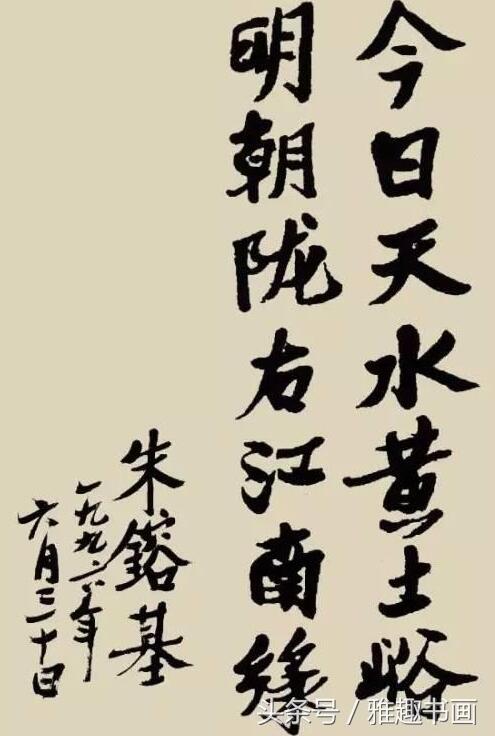 今日天水黄土峪
明朝陇右江南缘
朱鎔基
一九九六年
六月三十日
头条号 / 雅趣书画